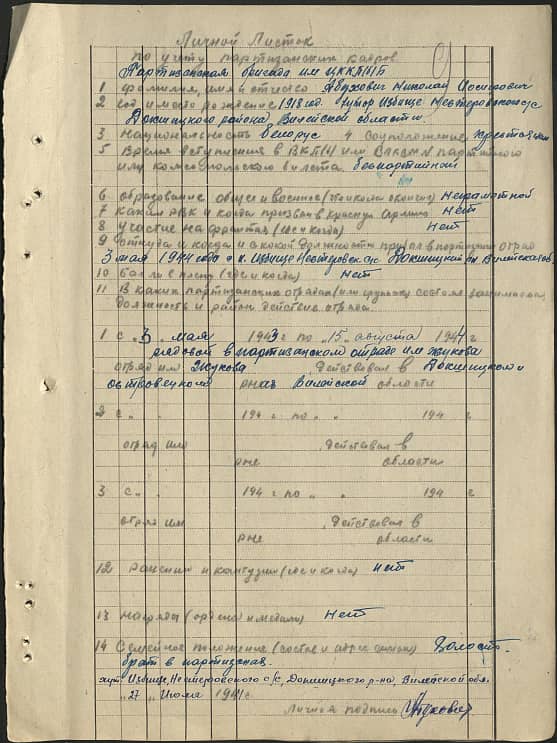 Личной Листок
по учету партизанских кадров
Партизанская бригада им ЦККП(б)Б
1 фамилия, имя и отчество Абухович Николай Иосифович
2 год и место рождение 1918 год. Хутор Избище Нестеровского с/с
Докшицкого района Вилейской области.
3 Национальность белорус 4 Соцположение крестьянин
5 Время вступления в ВКП(б) или ВЛКСМ N партийного
или комсомольского билета беспартийной
6 образование общее и военное (что и когда окончил) неграмотной
7 Каким РВК и когда призван в Красную Армию нет
8 Участие на фронтах (где и когда) нет
9 откуда и когда и в какой должности прибыл в партизан отряд
3 мая 1944 года х. Избище Нестеровск с/с Докшицкий Вилейской
10 был ли в плену (где и когда) нет
11 В каких партизанских отрядах (или группах) состоял занимаемая
должность и район действие отряда
1 с „3 мая 1943 г по „15„ августа 1944 г
рядовой в партизанском отряде им Жукова
отряд им Жукова Действовал в Докшицком и
островецком р-нах Вилейской области
2 с „ „ 194 г. по „ „ 194 г
отряд им Действовал в
р-не области
3 с „ „ 194 г по „ „ 194 г
отряд им Действовал в
р-не области
12 Ранения и контузии (где и когда) нет
13 Награды (ордена и медали) Нет
14 Семейное положение (состав и адрес семьи) Холост.
брат в партизанах.
хут. Избище, Нестеровского с/с, Докшицкого р-на, Вилейской обл.
„27„ Июля 1944 г.
Личная подпись Абухович